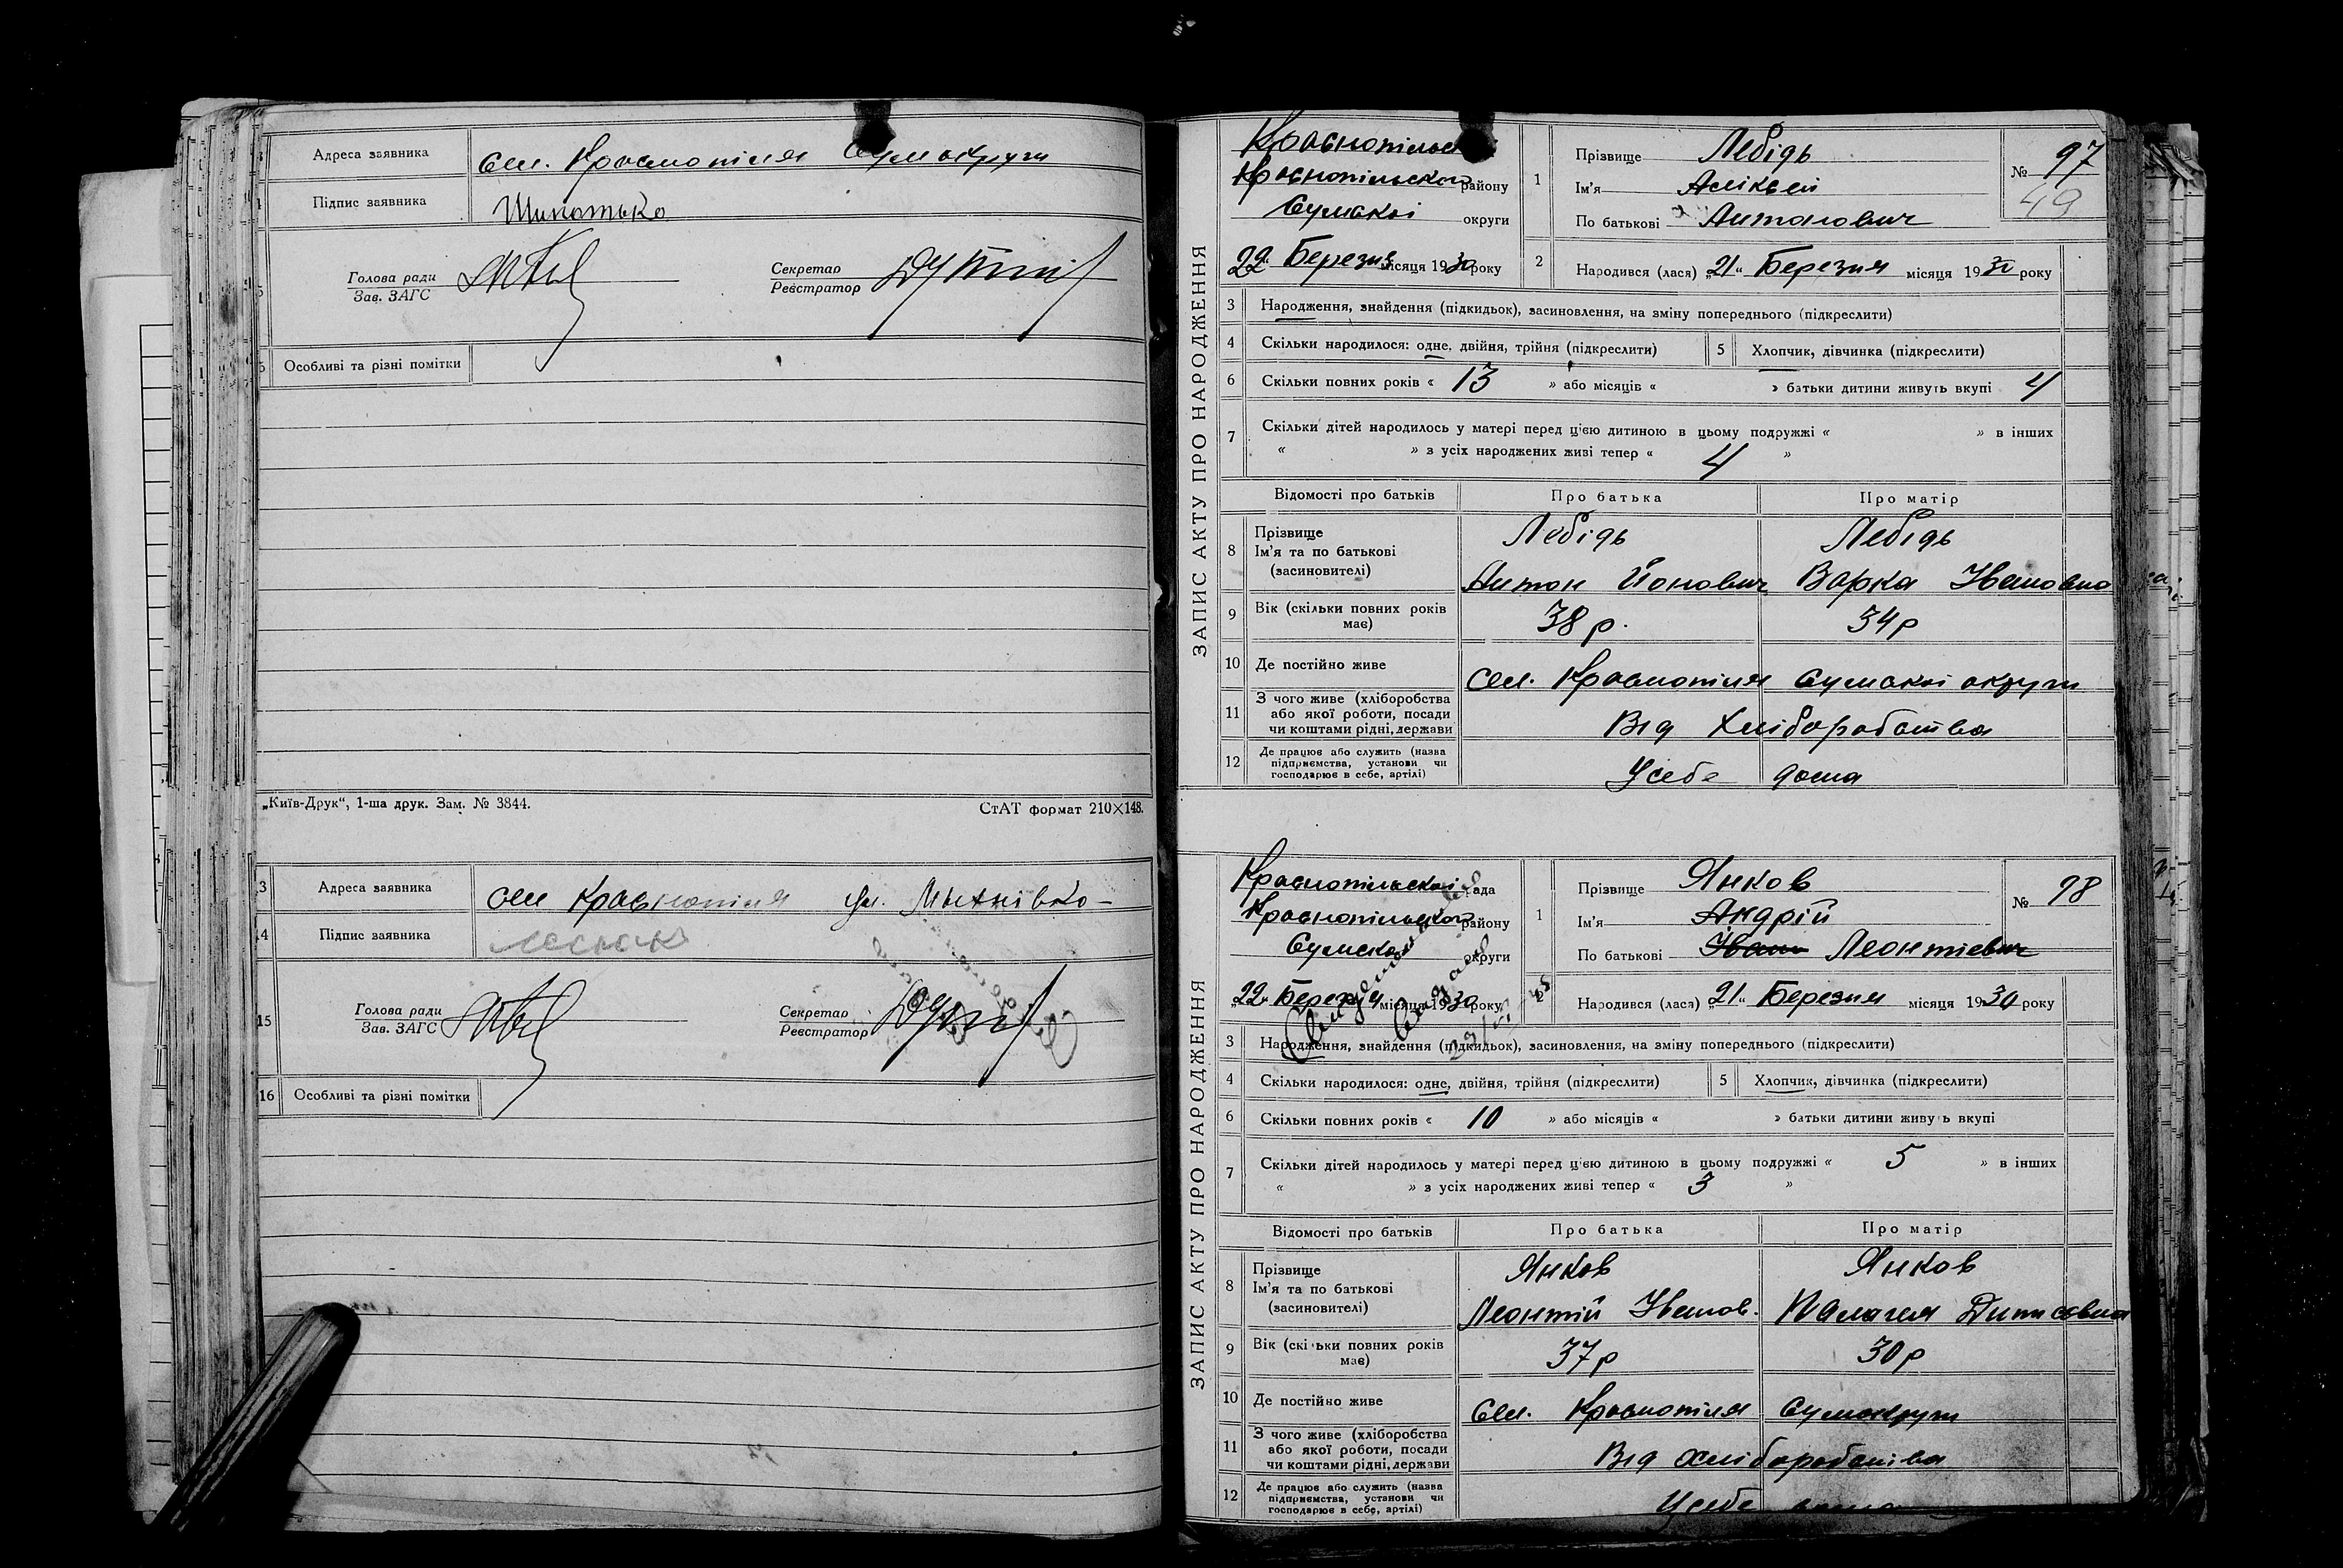 Адреса заявника
сел. Краснопілля Сумокруги
Підпис заявника
Шипотько
Голова ради
Зав. ЗАГС
Секретар
Реєстратор
Особливі та різні помітки
„Київ-Друк“, 1-ша друк. Зам. № 3844.
СтАТ формат 210×148.
13 Адреса заявника
сел Краснопілля
14 Підпис заявника
15 Голова ради
Зав. ЗАГС
Секретар
Реєстратор
16 Особливі та різні помітки
ЗАПИС АКТУ ПРО НАРОДЖЕННЯ
Краснопільської
Краснопільского району
Сумскої округи
„22“ Березня місяця 1930 року
1 Прізвище Лебідь
Ім'я Аліксей
По батькові Антонович
№ 97
49
2 Народився (лася) „21“ Березня місяця 1930 року
3 Народження, знайдення (підкидьок), засиновлення, на зміну попереднього (підкреслити)
4 Скільки народилося: одне, двійня, трійня (підкреслити) 5 Хлопчик, дівчинка (підкреслити)
6 Скільки повних років « 13 » або місяців « » батьки дитини живуть вкупі 4
7 Скільки дітей народилось у матері перед цією дитиною в цьому подружжі « » в інших
« » з усіх народжених живі тепер « 4 »
Відомості про батьків Про батька Про матір
8 Прізвище Лебідь Лебідь
Ім'я та по батькові
(засновителі)
Антон Йонович Варка Ивановна
9 Вік (скільки повних років має) 38 р. 34 р
10 Де постійно живе сел. Краснопілля Сумскої округи
11 З чого живе (хліборобства
або якої роботи, посади
чи коштами рідні, держави
Від Хліборобства
12 Де працює або служить (назва
підприємства, установи чи
господарює в себе, артілі)
У себе дома
ЗАПИС АКТУ ПРО НАРОДЖЕННЯ
Краснопільскої рада
Краснопільского району
Сумской округи
„22“ Березня місяця 1930 року
1 Прізвище Янков
Ім'я Андрій
По батькові Иван Леонтієвич
№ 98
2 Народився (лася) „21“ Березня місяця 1930 року
3 Народження, знайдення (підкидьок), засиновлення, на зміну попереднього (підкреслити)
4 Скільки народилося: одне, двійня, трійня (підкреслити) 5 Хлопчик, дівчинка (підкреслити)
6 Скільки повних років « 10 » або місяців « » батьки дитини живуть вкупі
7 Скільки дітей народилось у матері перед цією дитиною в цьому подружжі « 5 » в інших
« » з усіх народжених живі тепер « 3 »
Відомості про батьків Про батька Про матір
8 Прізвище Янков Янков
Ім'я та по батькові
(засиновителі)
Леонтій Иванов. Палагея Динисовна
9 Вік (скільки повних років має) 37 р 30 р
10 Де постійно живе Сел. Краснопілля Сумокруги
11 З чого живе (хліборобства
або якої роботи, посади
чи коштами рідні, держави
Від хліборобства
12 Де працює або служить (назва
підприємства, установи чи
господарює в себе, артілі)
У себе